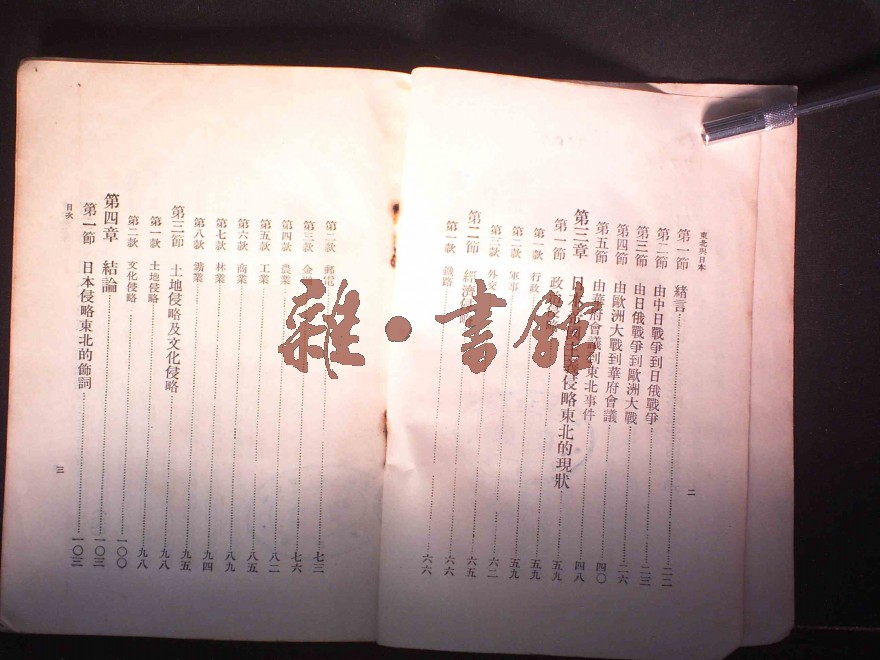 東北與日本
第一節 緒言……二二
第二節 由中日戰爭到日俄戰爭……二三
第三節 由日俄戰爭到歐洲大戰……二六
第四節 由歐洲大戰到華府會議……四〇
第五節 由華府會議到東北事件……四八
第三章 日本 主義侵略東北的現狀……五九
第一節 政治……五九
第一款 行政……五九
第二款 軍事……六二
第三款 外交……六五
第二節 經濟……六六
第一款 鐵路……六六
二
第二款 郵電……七三
第三款 金融……七六
第四款 農業……八二
第五款 工業……八五
第六款 商業……八九
第七款 林業……九四
第八款 鑛業……九五
第三節 土地侵略及文化侵略……九八
第一款 土地侵略……九八
第二款 文化侵略……一〇〇
第四章 結論……一〇三
第一節 日本侵略東北的飾詞……一〇三
目次
三
雜·書館